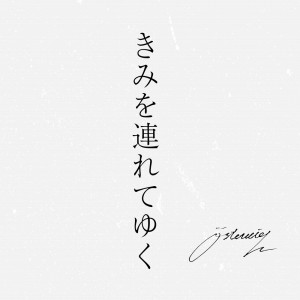 きみを連れてゆく